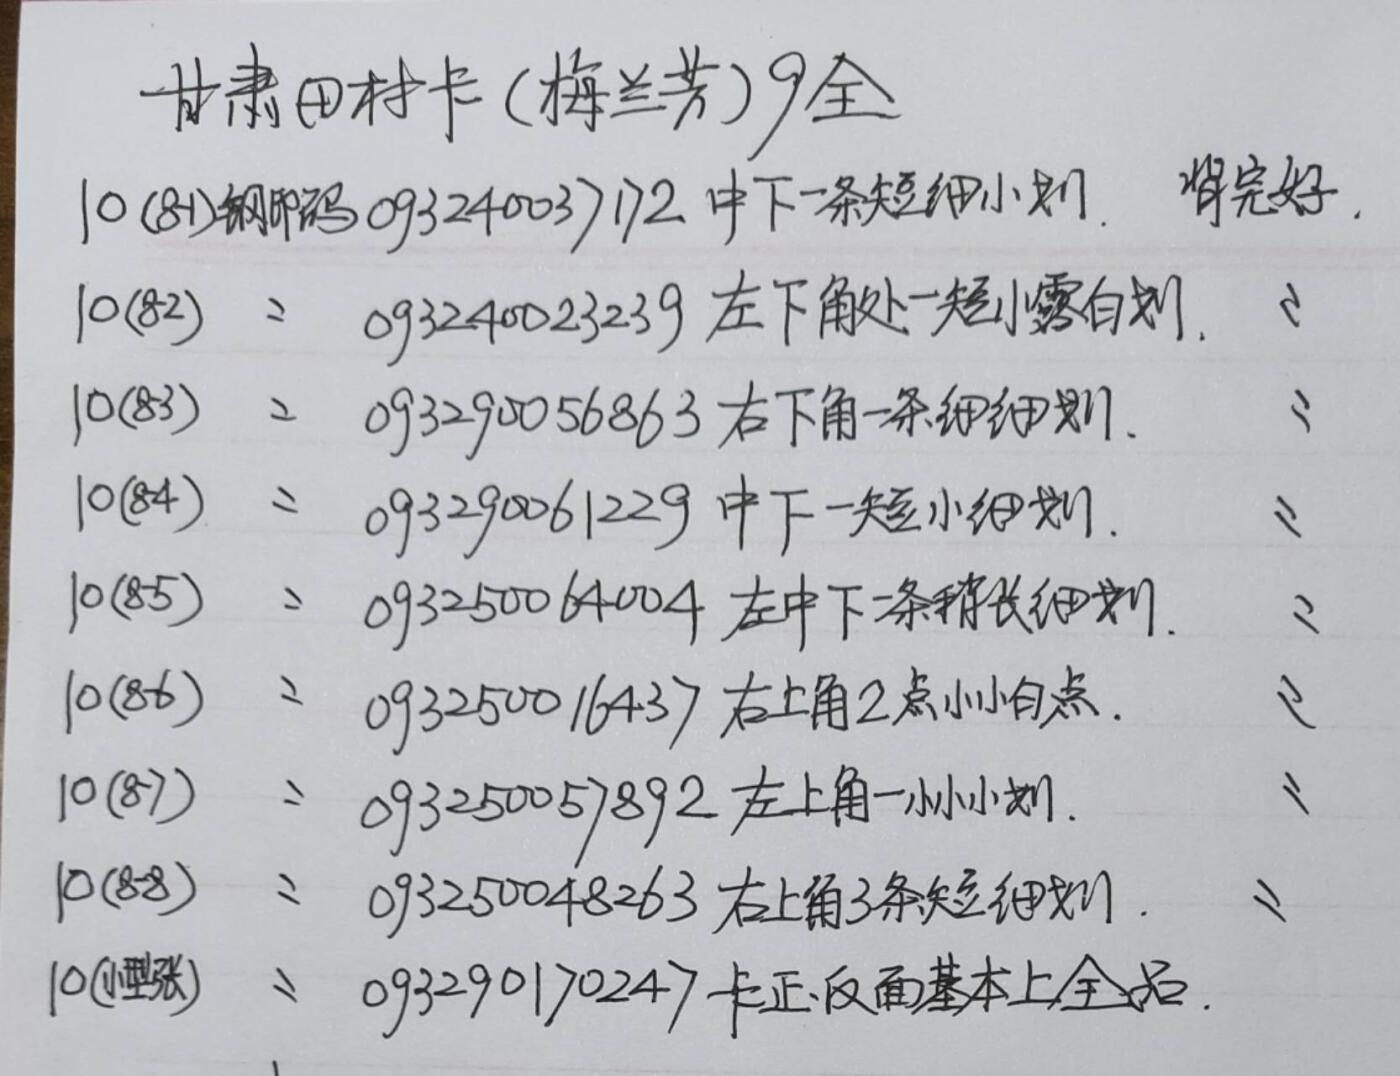 甘肃田村卡(梅兰芳)9全
10(8-1)钢印码 093240037172 中下一条短细小划. 背完好.
10(8-2) 〃 093240023239 左下角处一短小露白划. 〃
10(8-3) 〃 093290056863 右下角一条细细划. 〃
10(8-4) 〃 093290061229 中下一短小细划. 〃
10(8-5) 〃 093250064004 左中下一条稍长细划. 〃
10(8-6) 〃 093250016437 右上角2点小小白点. 〃
10(8-7) 〃 093250057892 左上角一小小小划. 〃
10(8-8) 〃 093250048263 右上角3条短细划. 〃
10(小型张) 〃 093290170247 卡正.反面基本上全品.